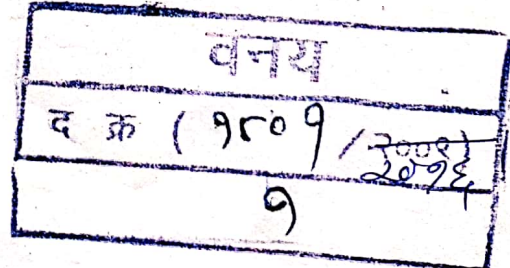 वनय
द क्र ( १८०१ / २०१६
१